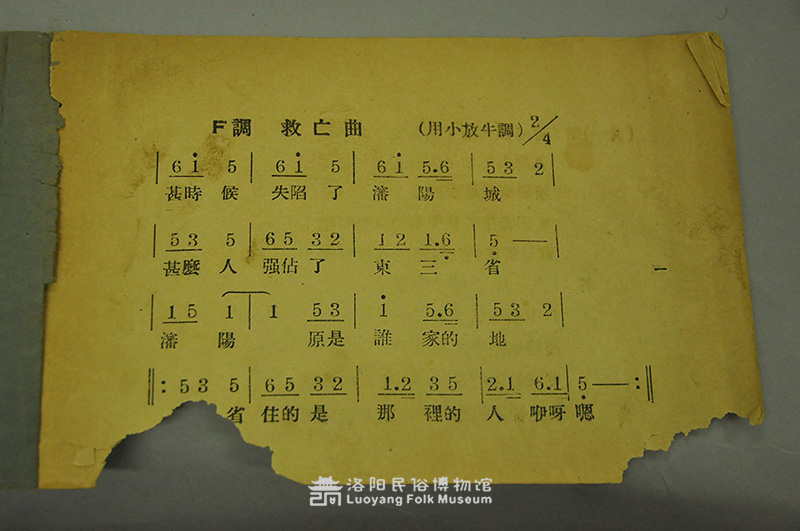 F調 救亡曲 (用小放牛調) 2/4
| 6 1̇ 5 | 6 1̇ 5 | 6 1̇ 5.6 | 5 3 2 |
甚時候 失陷了 瀋陽城
| 5 3 5 | 6 5 3 2 | 1 2 1.6̣ | 5̣ — |
甚麼人 强佔了 東三省
| 1 5 1 | 1 5 3 | 1̇ 5.6 | 5 3 2 |
瀋陽 原是 誰家的地
‖: 5 3 5 | 6 5 3 2 | 1.2 3 5 | 2.1 6.1 | 5̣ — :‖
省 住的是 那裡的人 咿呀嗯
洛阳民俗博物馆
Luoyang Folk Museum